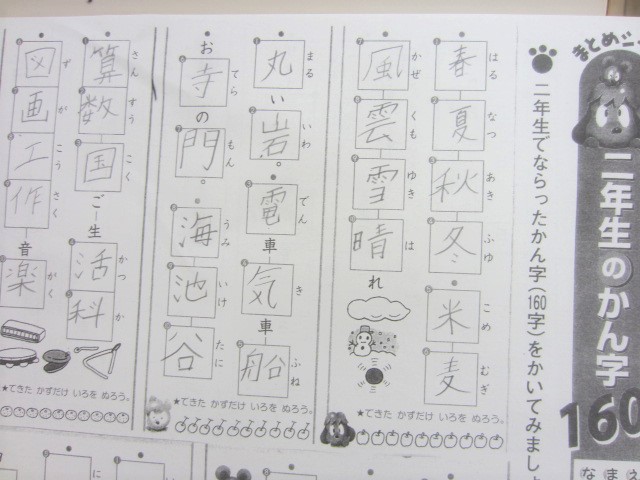 まとめ
二年生のかん字
160
なまえ
二年生でならったかん字(160字)をかいてみまし
春 はる
夏 なつ
秋 あき
冬 ふゆ
米 こめ
麦 むぎ
風 かぜ
雲 くも
雪 ゆき
晴れ は
★できた かずだけ いろを ぬろう。
丸い岩。 まる いわ
電車 でん
気車 き
船 ふね
お寺の門。 てら もん
海 うみ
池 いけ
谷 たに
★できた かずだけ いろを ぬろう。
算数 さん すう
国ご こく
生活科 かつ か
図画工作 ず が こう さく
音楽 がく
★できた かずだけ いろを ぬろう。